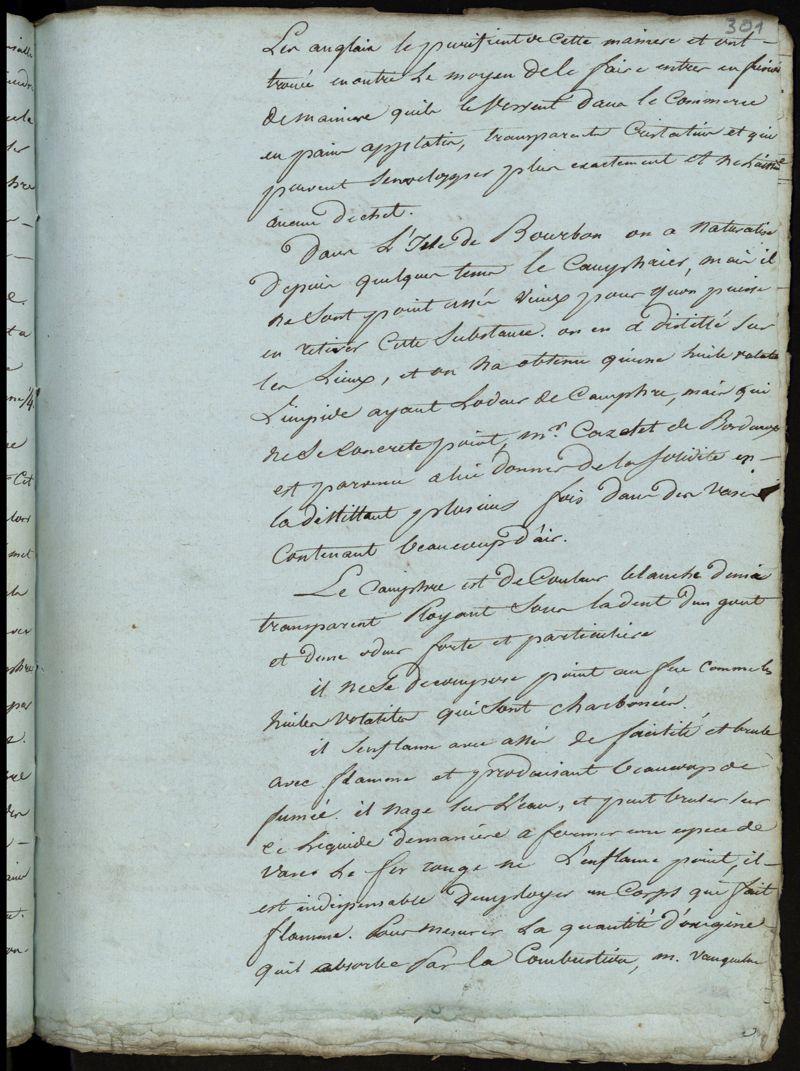 301
Les anglais le purifient de Cette maniere et ont
trouvé en outre Le moyen de le faire entrer en fusion
de maniere quils le versent dans le Commerce
en pains applatis, transparents Cristalins et qui
peuvent Senvelopper plus exactement et ne Laisse
aucun dechet.
Dans L'Isle de Bourbon on a naturalisé
Depuis quelques tems le Camphrier, mais il
ne sont point assés vieux pour qu'on puisse
en retirer Cette Substance. on en a distillé sur
les Lieux, et on na obtenu qu'une huile volatile
Limpide ayant Lodeur de Camphre, mais qui
ne Se Concrete point, mr. Cazalet de Bordeaux
est parvenu a lui donner de la solidité en
la distillant plusieurs fois dans des vases
Contenant beaucoup d'air.
Le Camphre est de Couleur blanche demie
transparent Royant Sous la dent dun gout
et dune odeur forte et particuliere
il ne Se decompose point au feu comme les
huiles volatiles qui sont charbonées.
il Senflame avec assés de facilité et brule
avec flamme et produisant beaucoup de
fumée. il nage sur L'eau, et peut bruler sur
ce Liquide de maniere a former une espece de
vases Le fer rouge ne L'enflame point, il
est indispensable d'employer un Corps qui fait
flamme. Pour mesurer La quantité d'oxigène
quil absorbe Par la Combustion, m. vauquelin